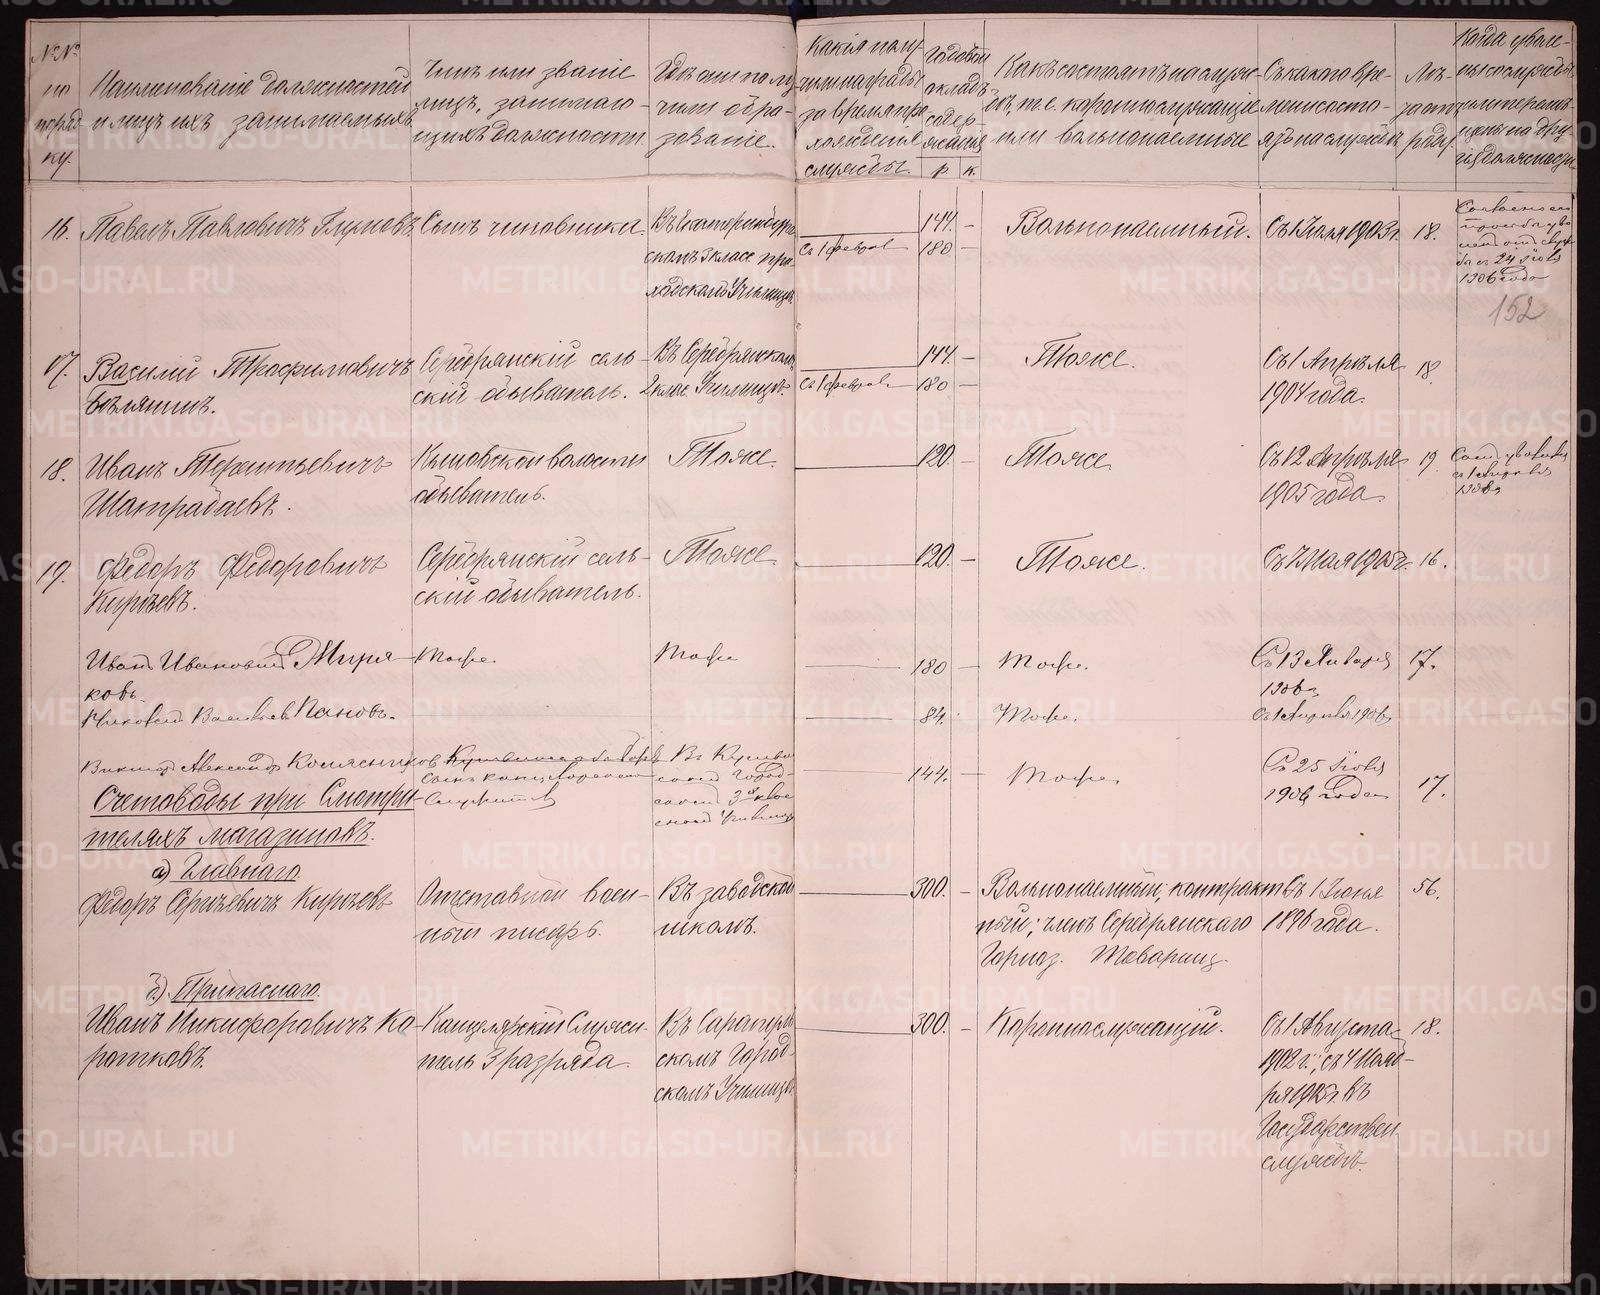 №№
по
поряд
ку.
Наименованіе должностей
и лицъ ихъ занимаемыхъ
Чинъ или званіе
лицъ, занимаю-
щихъ должности
Гдѣ они полу-
чили обра-
зованіе.
Какія полу-
чили награды
за время про
хожденія
службы.
Годовой
окладъ
содер
жанія
р. к.
Какъ состоятъ на служ-
бѣ, т.е. короннослужащіе
или вольнонаемные
Съ какого вре-
мени состо-
ятъ на службѣ
Лѣ-
та отъ
роду
Когда уволе-
ны со службы
или перемѣ-
щены на дру-
гія должности
16. Павелъ Павловичъ Сынъ чиновника. Въ Екатеринбург
скомъ 3 класс. при-
ходскомъ Училищѣ.
144. — Вольнонаемный. Съ 1 Іюля 1903 г. 18.
Съ 1 февраля 180 —
Согласно
просьбы уво
ленъ отъ служ
бы съ 24 Іюля
1906 года
152
17. Василій Трофимовичъ
Бѣлянинъ.
Серебрянскій сель-
скій обыватель.
Въ Серебрянскомъ
2 клас. Училищѣ.
144 — Тоже. Съ 1 Апрѣля
1904 года. 18.
Съ 1 февраля 180 —
18. Иванъ Терентьевичъ
Шатрабаевъ.
волости
обыватель.
Тоже.
120. — Тоже. Съ 12 Апрѣля
1905 года. 19.
19. Федоръ Федоровичъ
Киряевъ.
Серебрянскій сель-
скій обыватель.
Тоже.
120. — Тоже. Съ 1905 г. 16.
Иванъ Ивановичъ Миря
ковъ.
Тоже. Тоже
180 — Тоже. Съ 13 Января
1906 г. 17.
Васильевъ Пановъ.
84. Тоже. Съ 1 1906 г.
Викторъ Александр. Колясников
Сынъ канцелярскаго
служителя
Въ Кушвин
ском город
ском 3х клас
сном Училищѣ
144. — Тоже. Съ 25 Іюля
1906 года 17.
Счетоводы при Смотри-
теляхъ магазиновъ.
а) Главнаго.
Федоръ Сергѣевичъ Киряевъ
Отставной воен-
ный писарь.
Въ заводской
школѣ.
300. — Вольнонаемный, контракт
ный; членъ Серебрянскаго
Горноз. Товарищ.
Съ 1 Іюня
1896 года. 56.
б) Припаснаго.
Иванъ Никифоровичъ Ко-
ротковъ.
Канцелярскій Служи-
тель 3 разряда.
Въ Сарапуль
скомъ Город-
скомъ Училищѣ
300. — Короннослужащій. Съ 1 Августа
1902 г.; съ 4 Нояб-
ря 1905 г. въ
Государствен.
службѣ.
18.
METRIKI.GASO-URAL.RU